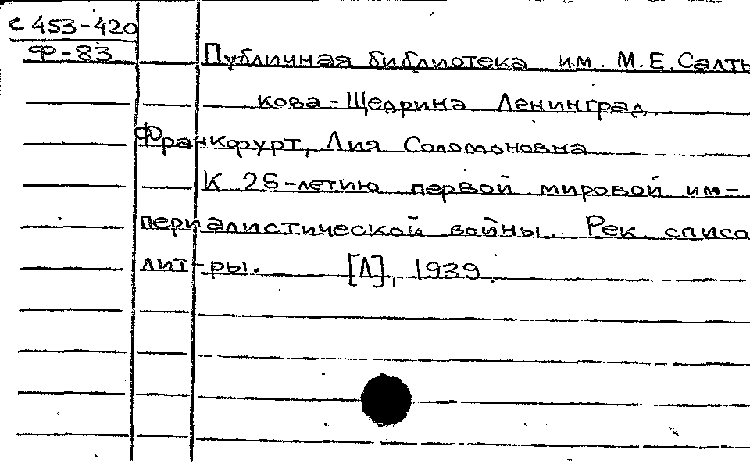 с 453-420
Ф-83
Публичная библиотека им. М.Е.Салты
кова-Щедрина Ленинград
Франкфурт, Лия Соломоновна
К 25-летию первой мировой им-
периалистической войны. Рек. списо
лит-ры. [Л], 1939.